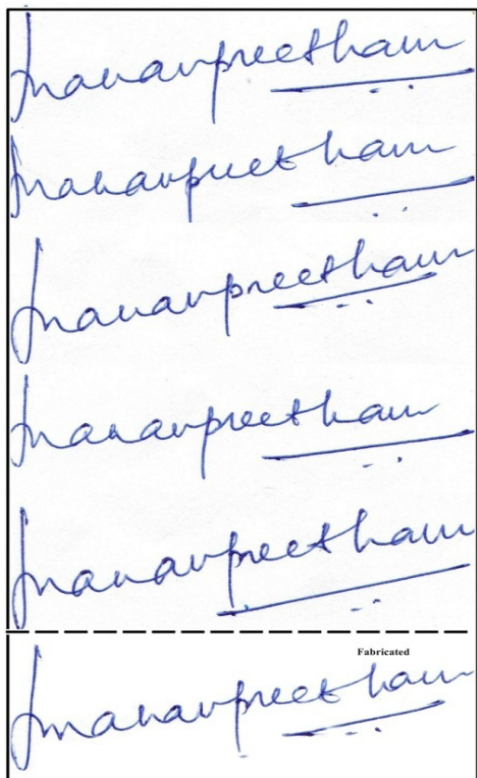 Jnanavpreetham
Jnanavpreetham
Jnanavpreetham
Jnanavpreetham
Jnanavpreetham
Fabricated
Jmanavpreetham